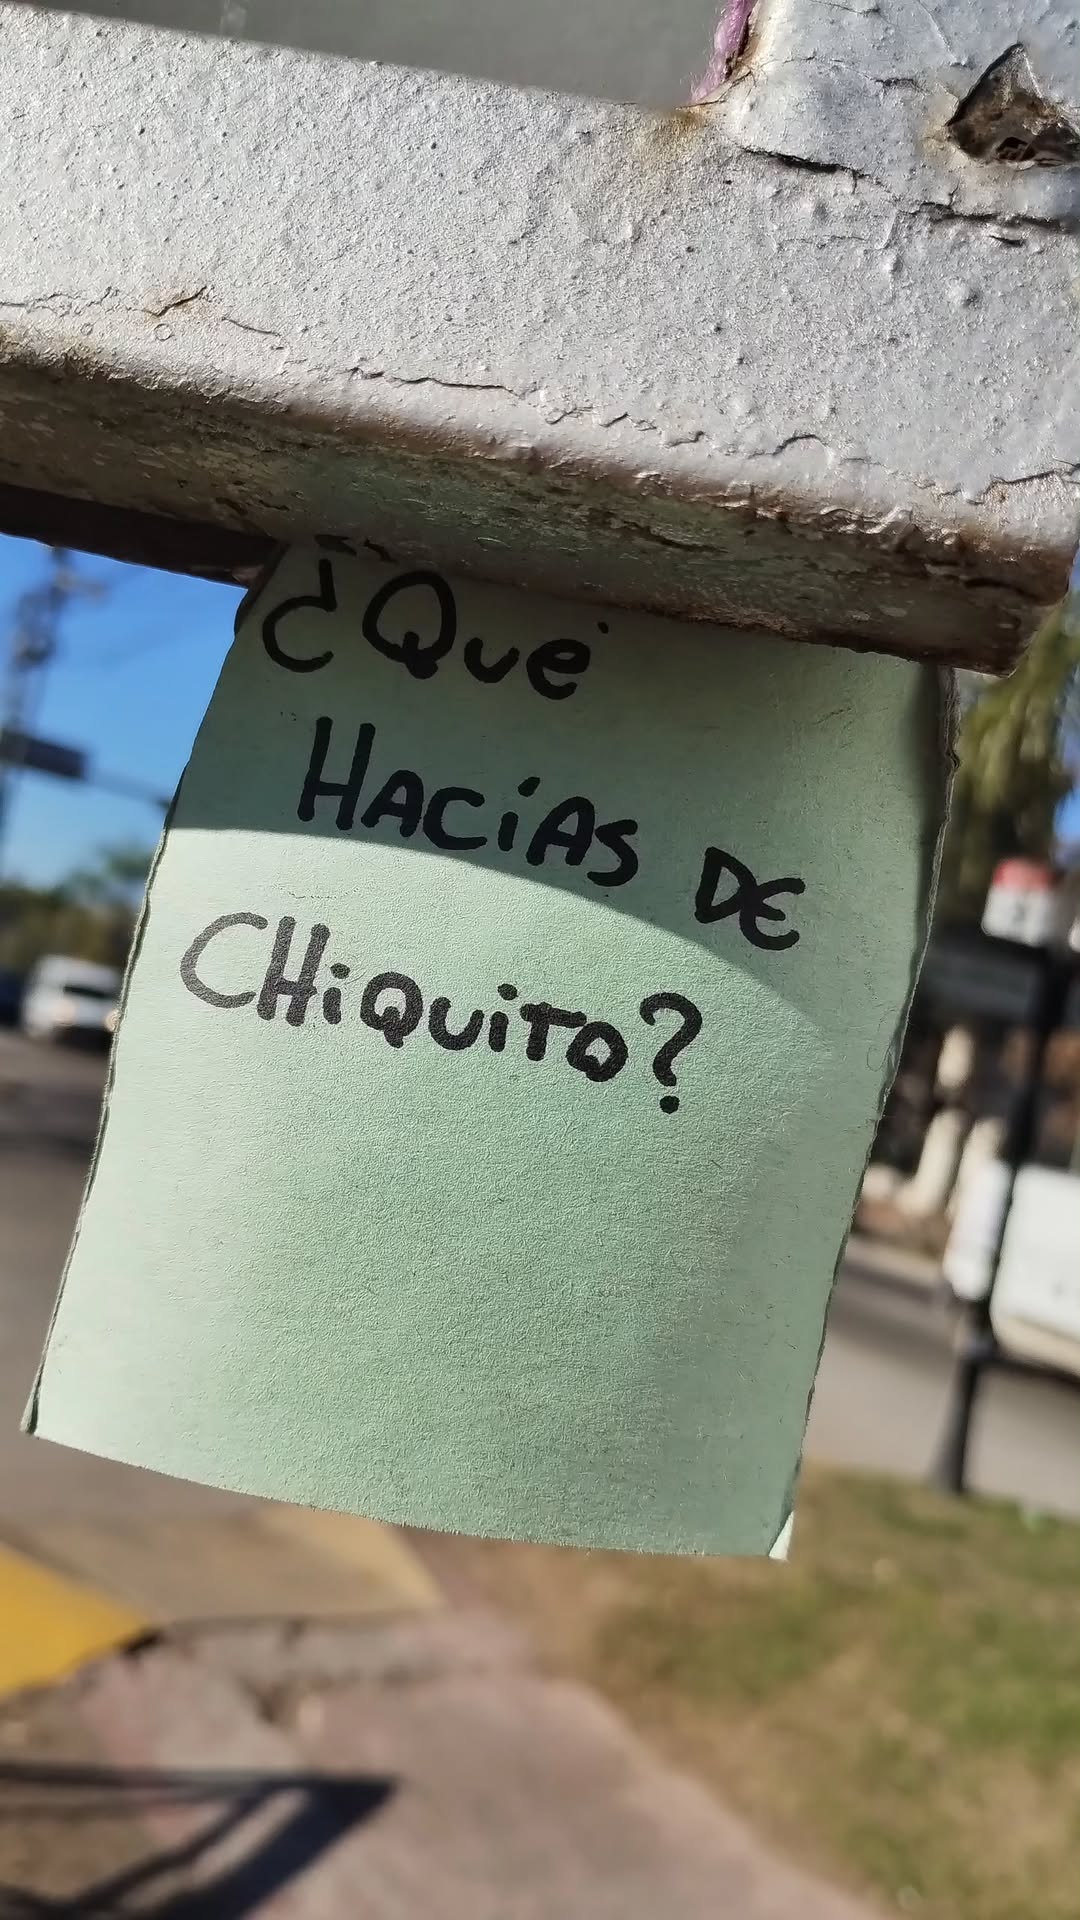 ¿Qué
HACíAS DE
CHiQUiTO?